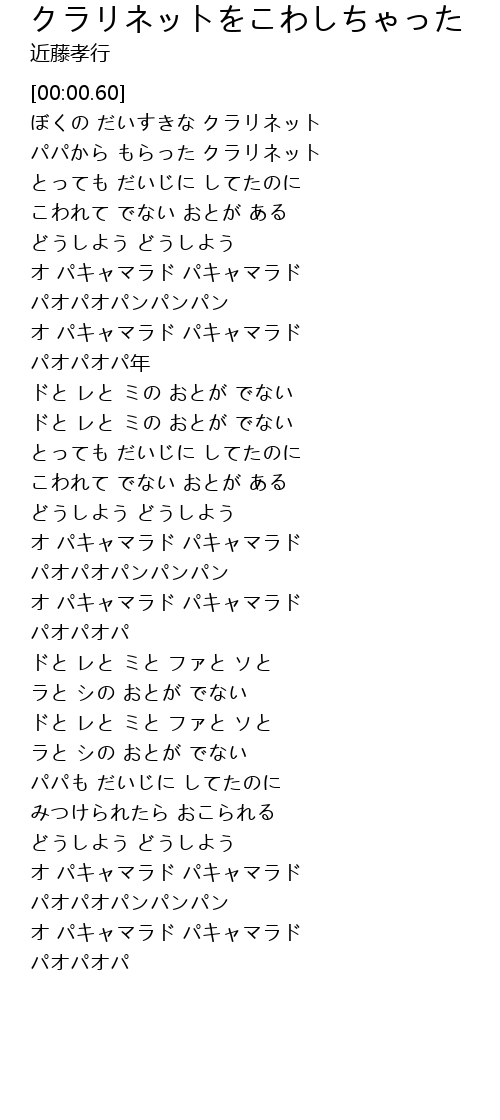 クラリネットをこわしちゃった
近藤孝行
[00:00.60]
ぼくの だいすきな クラリネット
パパから もらった クラリネット
とっても だいじに してたのに
こわれて でない おとが ある
どうしよう どうしよう
オ パキャマラド パキャマラド
パオパオパンパンパン
オ パキャマラド パキャマラド
パオパオパ年
ドと レと ミの おとが でない
ドと レと ミの おとが でない
とっても だいじに してたのに
こわれて でない おとが ある
どうしよう どうしよう
オ パキャマラド パキャマラド
パオパオパンパンパン
オ パキャマラド パキャマラド
パオパオパ
ドと レと ミと ファと ソと
ラと シの おとが でない
ドと レと ミと ファと ソと
ラと シの おとが でない
パパも だいじに してたのに
みつけられたら おこられる
どうしよう どうしよう
オ パキャマラド パキャマラド
パオパオパンパンパン
オ パキャマラド パキャマラド
パオパオパ